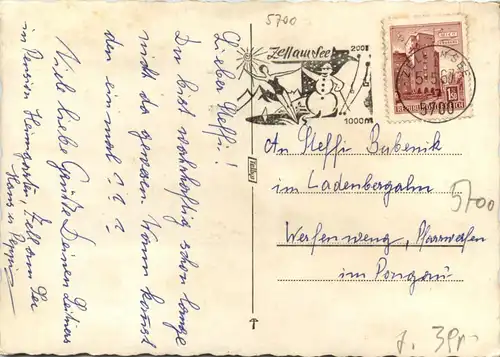 5700
Zell am See
200
1000m
ZELL AM SEE
5700
REPUBLIK ÖSTERREICH
Lieber Steffi!
Du bist wahrhaftig schon lange
nicht da gewesen. Wann kommst
den einmal? ? ?
Viele liebe Grüße Deinen
in Pension Heimgarten, Zell am See
Hans u.
An Steffi Bubenik
im Ladenbergalm
Werfenweng, Pfarrwerfen
im Pongau
5700